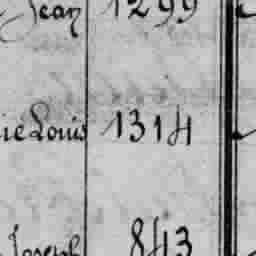 Jean 1299
ie Louis 1314
Joseph 843